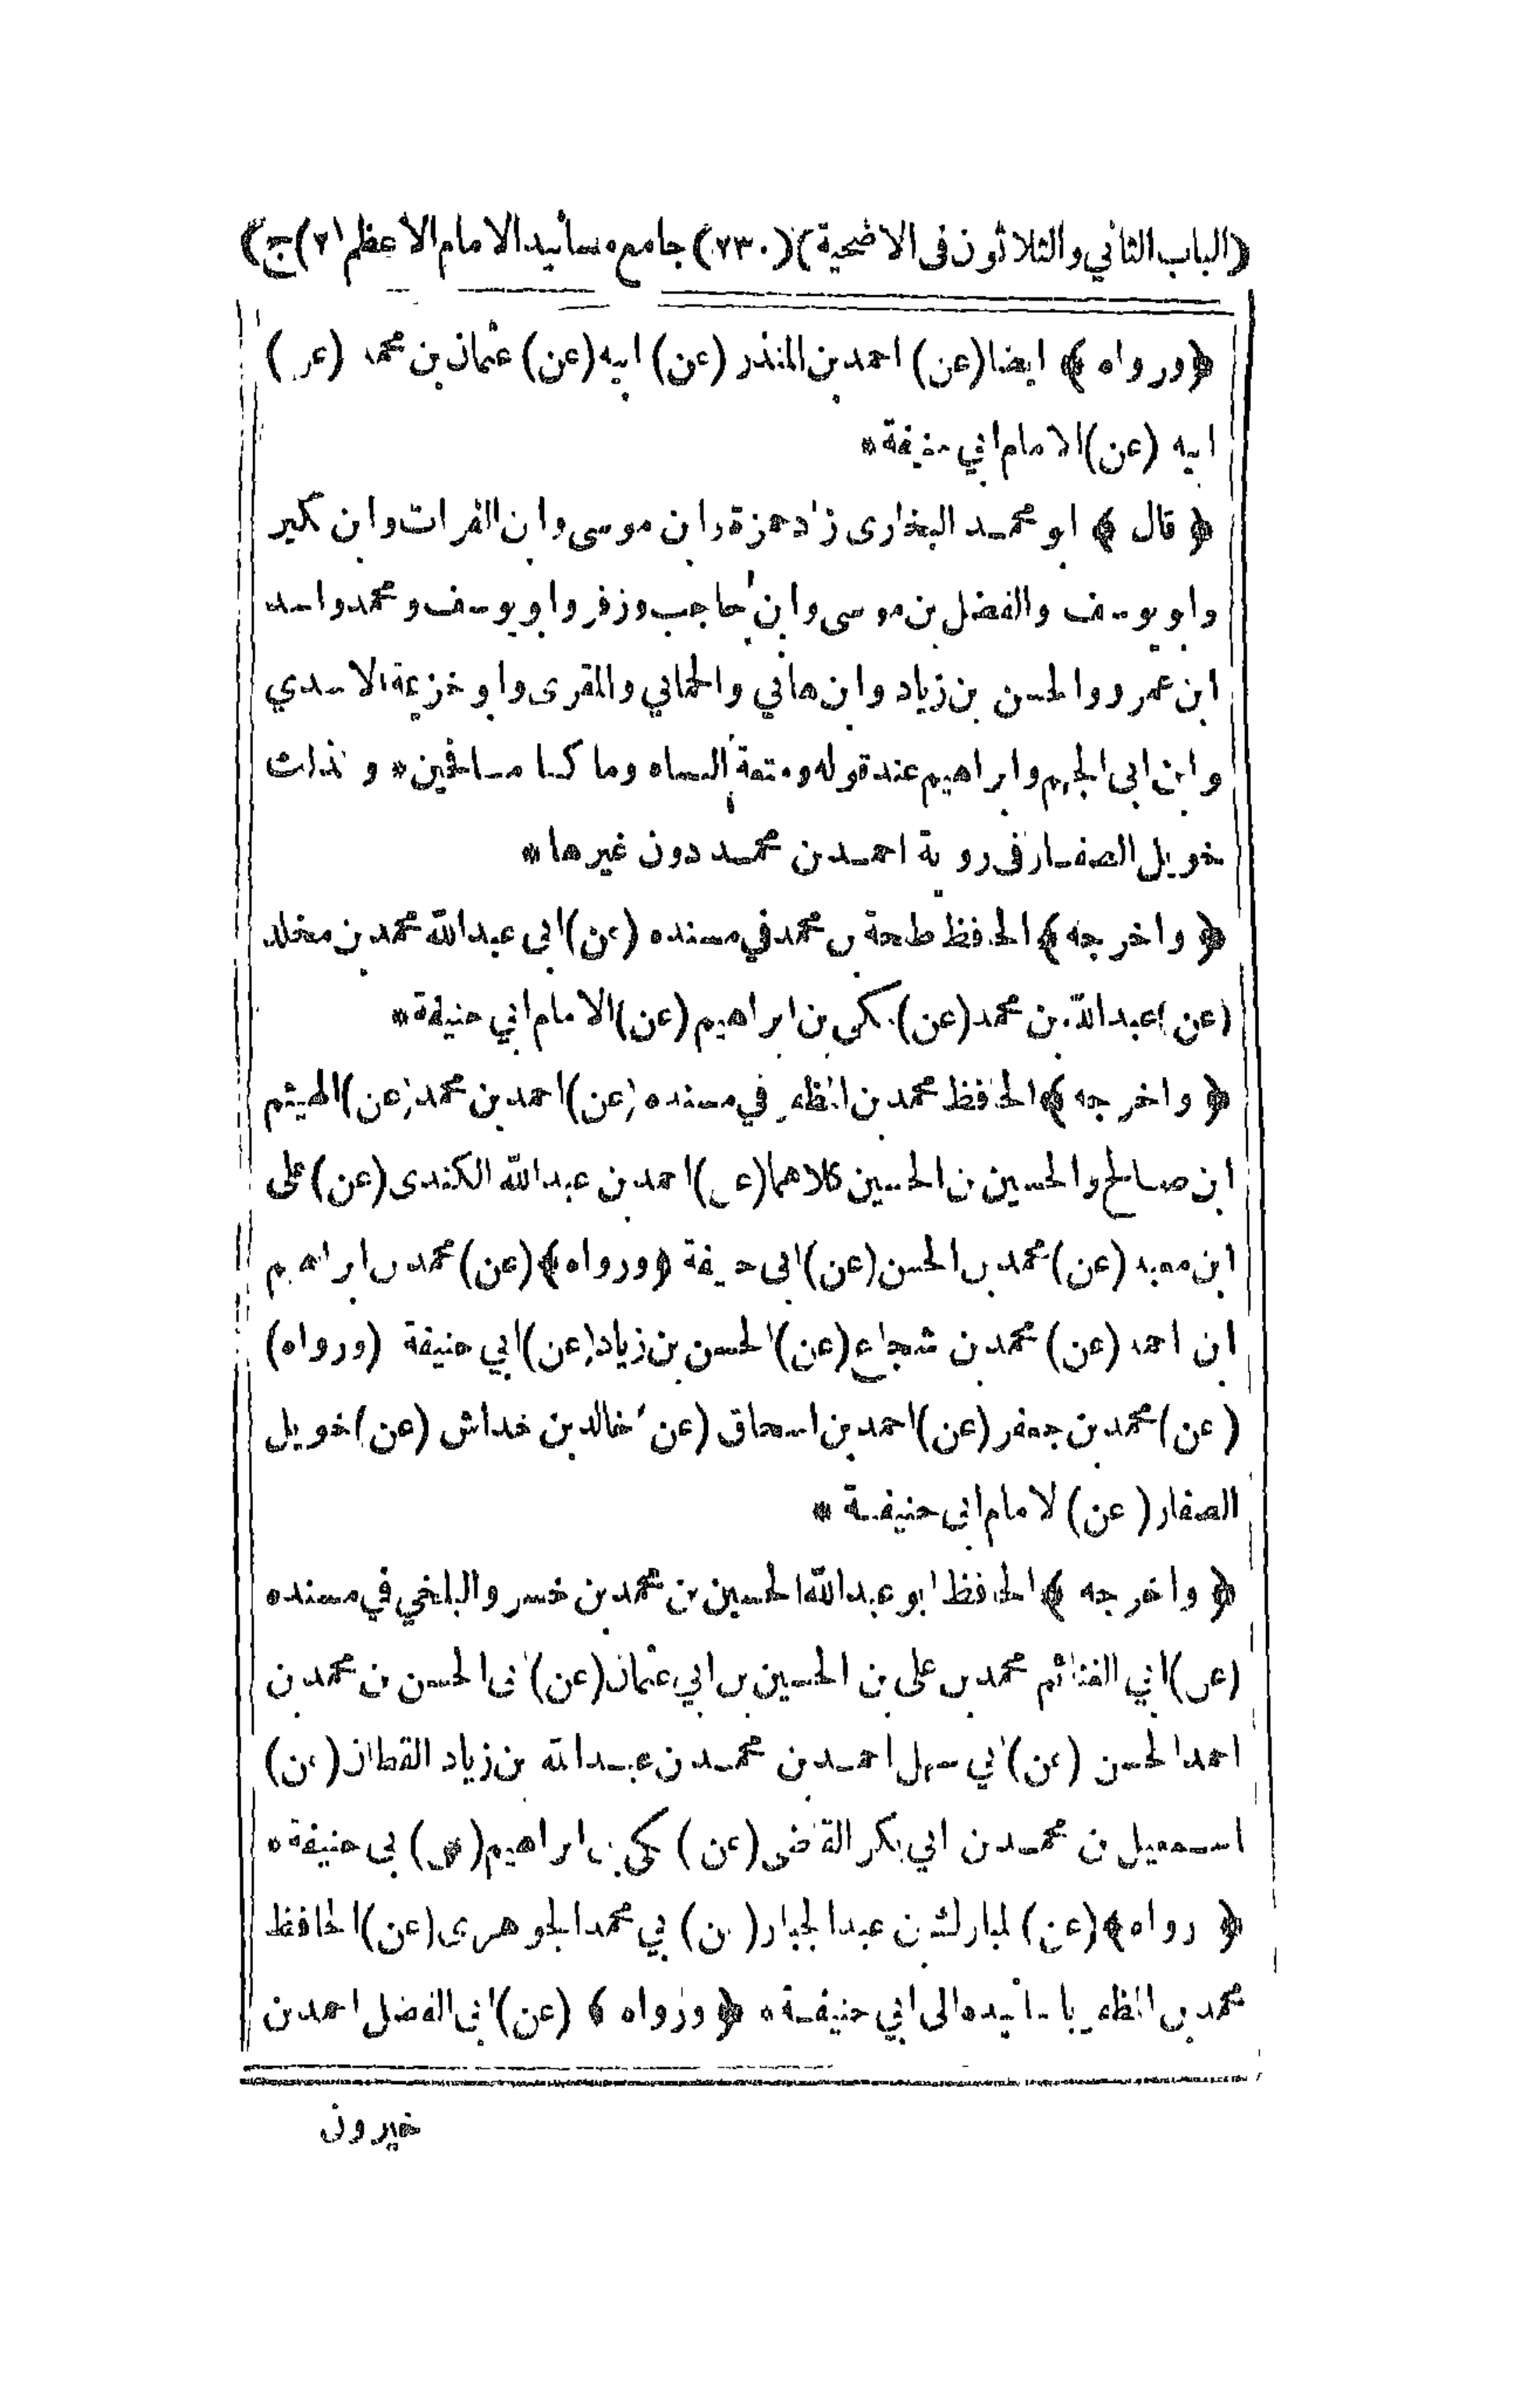 (الباب الثاني والثلاثون فى الاضحية) (٢٣٠) جامع مسانيد الامام الاعظم (ج٢)
﴿ورواه﴾ ايضا (عن) احمد بن المنذر (عن) ابيه (عن) عثمان بن محمد (عن)
ابيه (عن) الامام ابي حنيفة *
﴿قال﴾ ابو محمد البخارى زاد حمزة وابن موسى وابن الفرات وابن بكير
وابو يوسف والفضل بن موسى وابن حاجب وزفر وابو يوسف ومحمد واسد
ابن عمرو والحسن بن زياد وابن هاني والحماني والمقرى وابو خزيمة الاسدي
وابن ابى الجهم وابراهيم عند قوله ومتعة النساء وما كنا مسافحين * وكذلك
خويل الصفار فى رواية احمد بن محمد دون غيرها *
﴿واخرجه﴾ الحافظ طلحة بن محمد في مسنده (عن) ابى عبد الله محمد بن مخلد
(عن) عبد الله بن محمد (عن) مكي بن ابراهيم (عن) الامام ابي حنيفة *
﴿واخرجه﴾ الحافظ محمد بن المظفر في مسنده (عن) احمد بن محمد (عن) الهيثم
ابن صالح والحسين بن الحسين كلاهما (عن) احمد بن عبد الله الكندى (عن) على
ابن معبد (عن) محمد بن الحسن (عن) ابى حنيفة ﴿ورواه﴾ (عن) محمد بن ابراهيم
ابن احمد (عن) محمد بن شجاع (عن) الحسن بن زياد (عن) ابي حنيفة (ورواه)
(عن) محمد بن جعفر (عن) احمد بن اسحاق (عن) خالد بن خداش (عن) خويل
الصفار (عن) الامام ابى حنيفة *
﴿واخرجه﴾ الحافظ ابو عبد الله الحسين بن محمد بن خسرو البلخي في مسنده
(عن) ابي الغنائم محمد بن على بن الحسين بن ابي عثمان (عن) ابى الحسن بن محمد بن
احمد الحسن (عن) ابي سهل احمد بن محمد بن عبد الله بن زياد القطان (عن)
اسمعيل بن محمد بن ابي بكر القاضى (عن) مكي بن ابراهيم (عن) ابى حنيفة *
﴿ورواه﴾ (عن) المبارك بن عبد الجبار (عن) ابي محمد الجوهرى (عن) الحافظ
محمد بن المظفر باسانيده الى ابي حنيفة * ﴿ورواه﴾ (عن) ابى الفضل احمد بن
خيرون